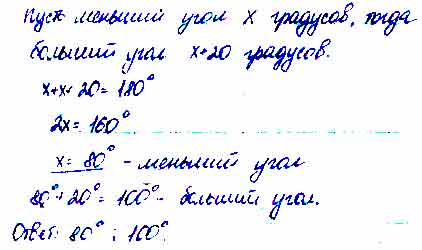 Пусть меньший угол x градусов, тогда
больший угол x+20 градусов.
x+x+20=180°
2x=160°
x=80° - меньший угол
80°+20°=100° - больший угол.
Ответ: 80°; 100°